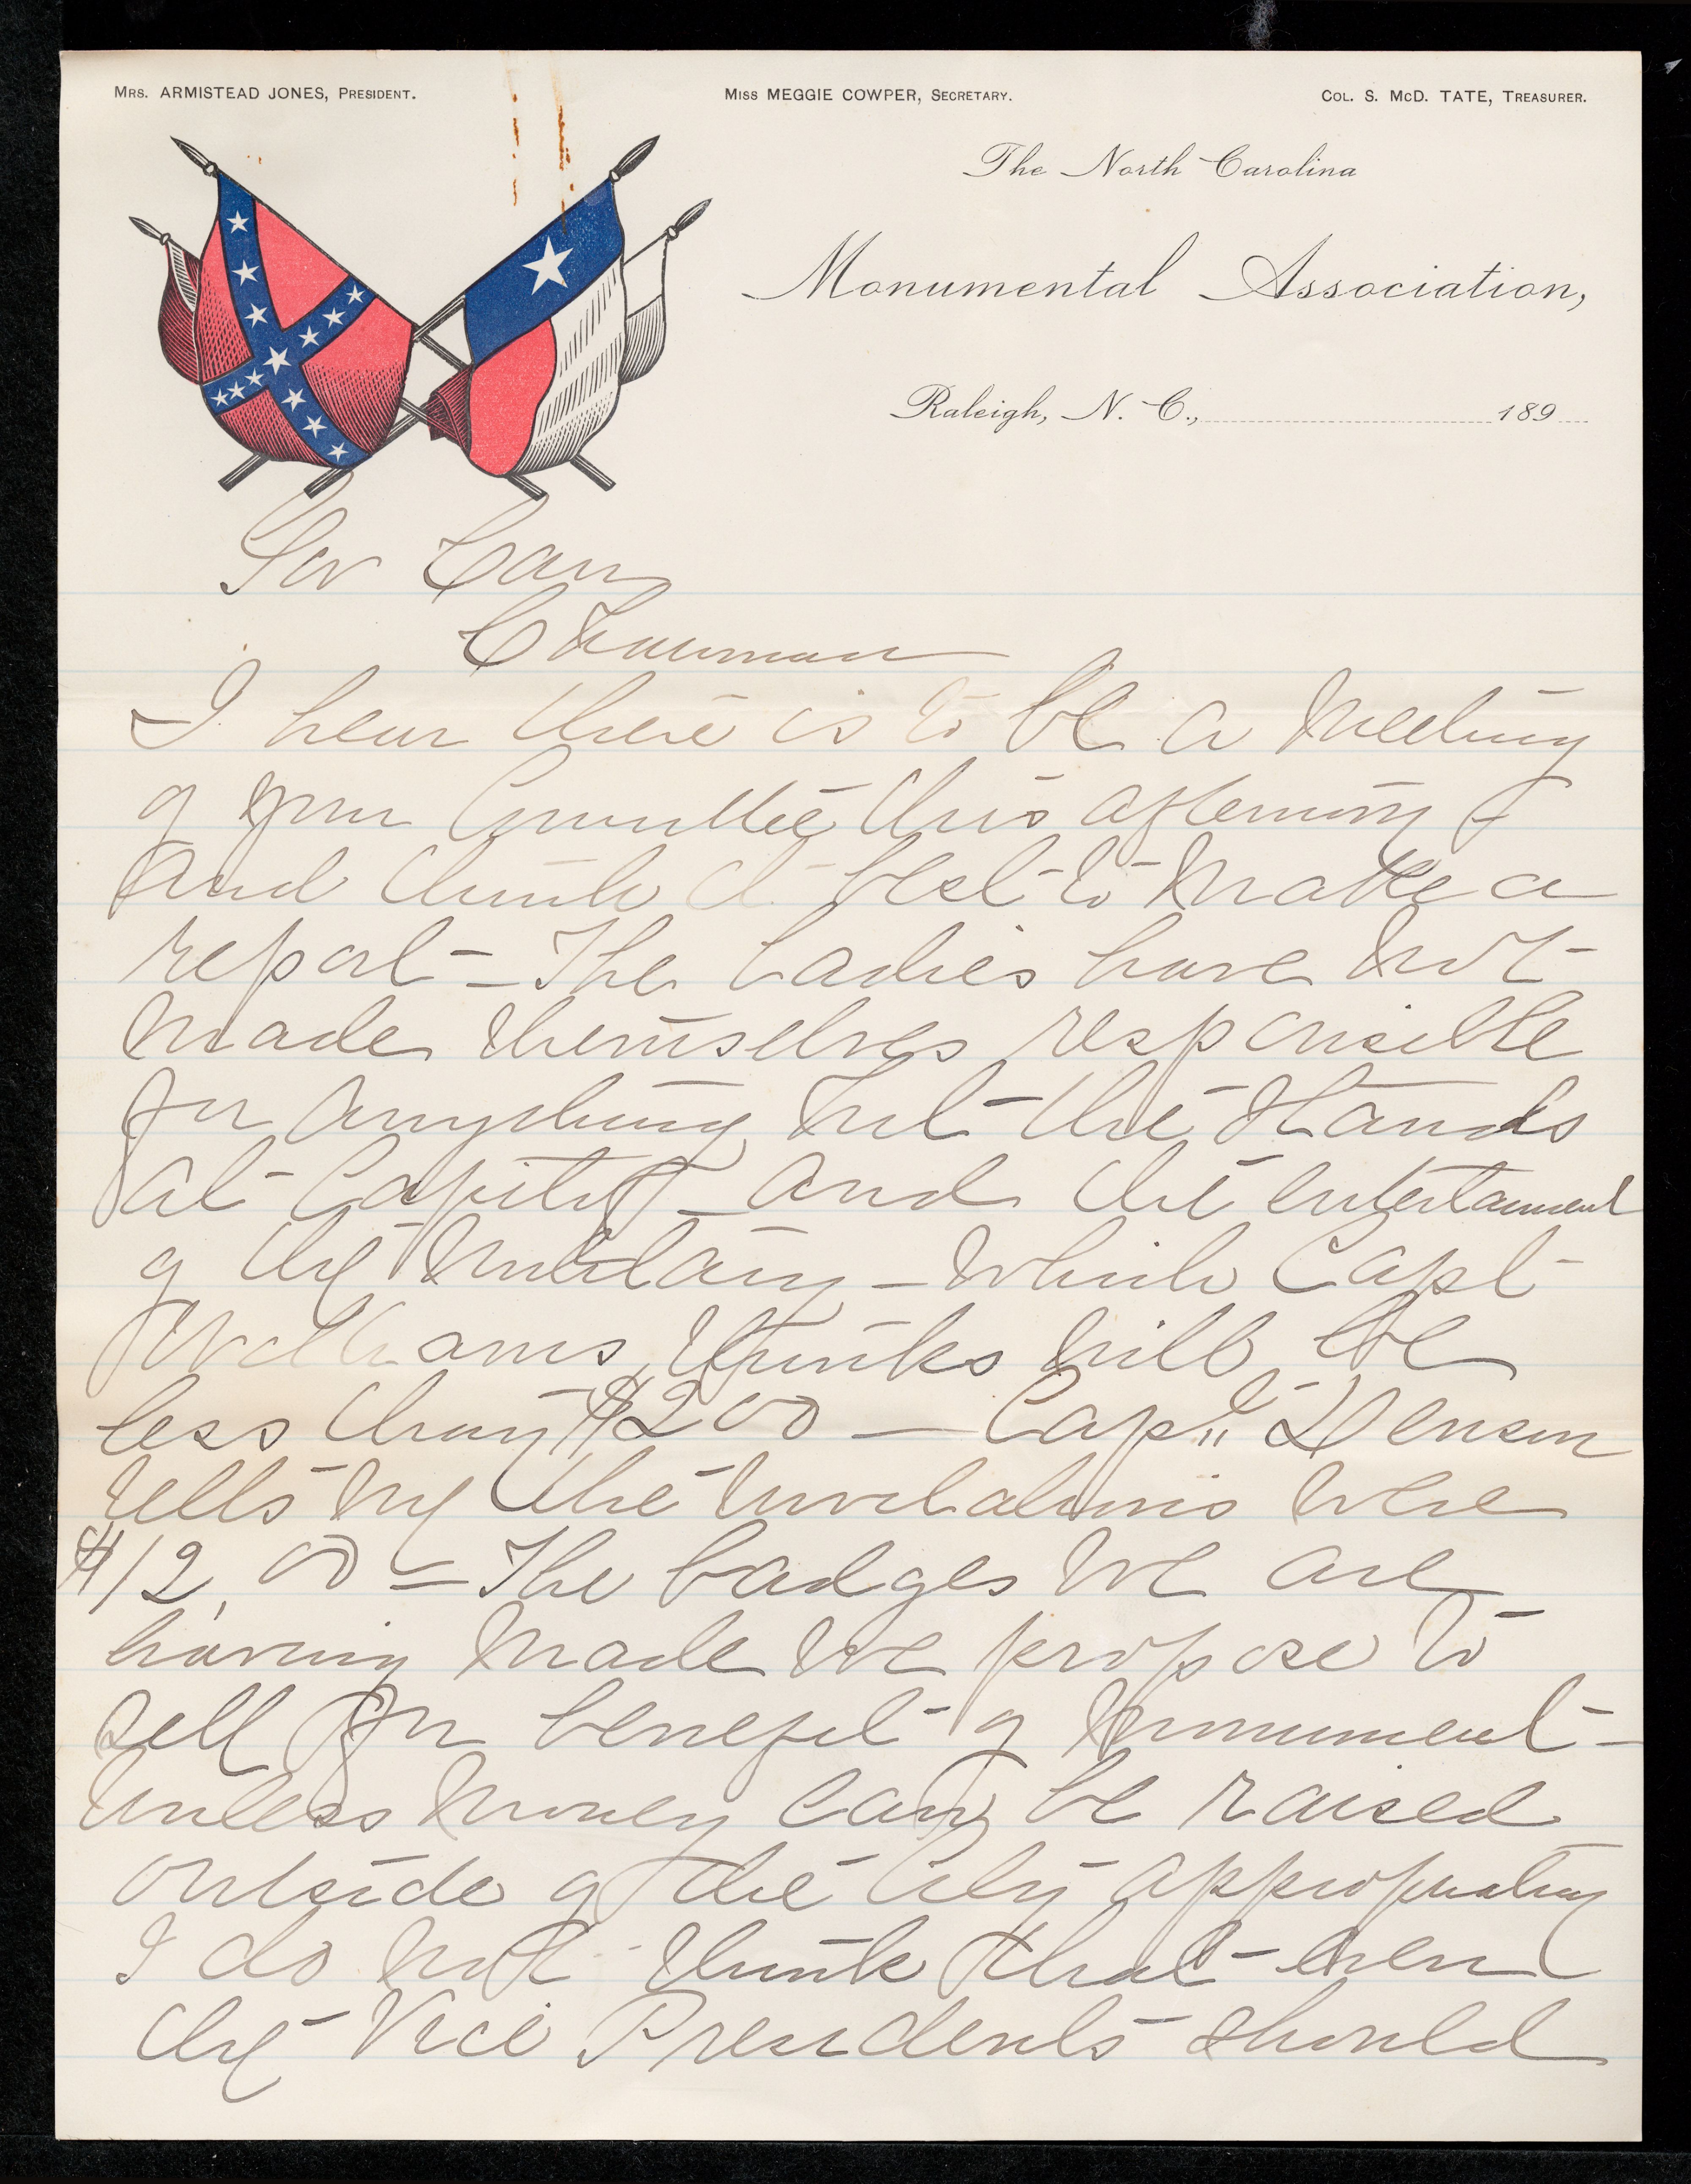 Mrs. ARMISTEAD JONES, President.
Miss MEGGIE COWPER, Secretary.
Col. S. McD. TATE, Treasurer.
The North Carolina
Monumental Association,
Raleigh, N. C., 189
Gov Carr
Chairman
I hear there is to be a meeting
of your Committee this afternoon &
and think it best to make a
report — The Ladies have not
made themselves responsible
for anything but the stands
at Capitol and the entertainment
of the Military — which Capt
Williams thinks will be
less than $200 — Capt Denson
tells me the invitations were
$12,00 — The badges we are
having made we propose to
sell for benefit of monument —
unless money can be raised
outside of the City appropriation
I do not think that even
the Vice Presidents should